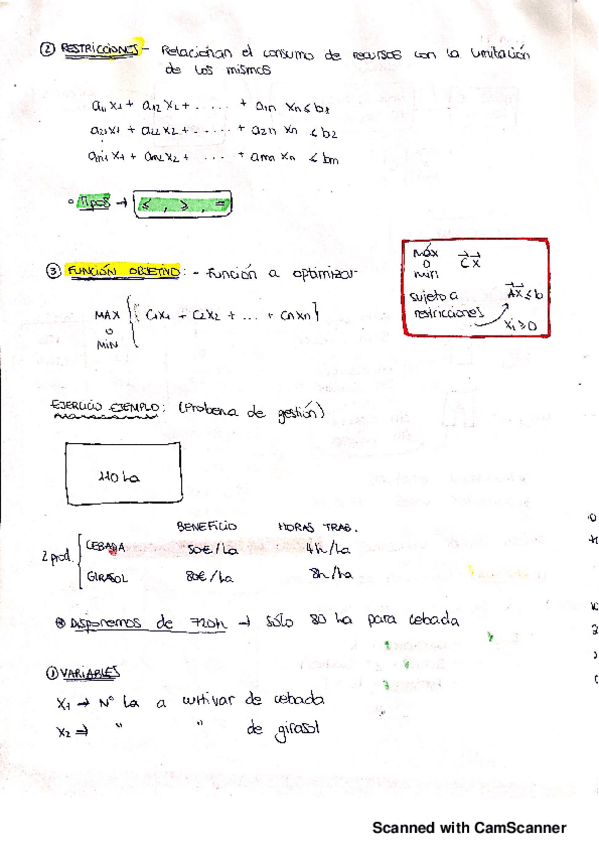 ② RESTRICCIONES - Relacionan el consumo de recursos con la limitación
de los mismos
a11x1 + a12x2 + .... + a1n xn ≤ b1
a21x1 + a22x2 + .... + a2n xn ≤ b2
am1x1 + am2x2 + .... + amn xn ≤ bm
◦ Tipos → ≤, ≥, =
③ FUNCIÓN OBJETIVO: - Función a optimizar
MAX
o
MIN
C1X1 + C2X2 + ... + CnXn
MÁX
o
min
CX
sujeto a
restricciones
AX ≤ b
Xi ≥ 0
EJERCICIO EJEMPLO: (Problema de gestión)
110 ha
BENEFICIO HORAS TRAB.
2 prod.
CEBADA 50€/ha 4h/ha
GIRASOL 80€/ha 8h/ha
Disponemos de 720h → Sólo 80 ha para cebada
① VARIABLES
X1 → Nº ha a cultivar de cebada
X2 → " " de girasol
Scanned with CamScanner